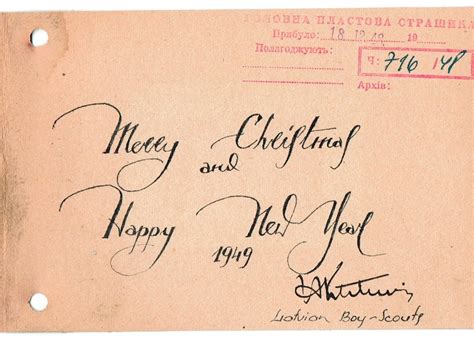 ГОЛОВНА ПЛАСТОВА СТАРШИНА
Прибуло: 18.12.48 19
Полагоджують:
Ч: 716
Архів:
Merry Christmas
and
Happy New Year
1949
Latvian Boy-Scouts